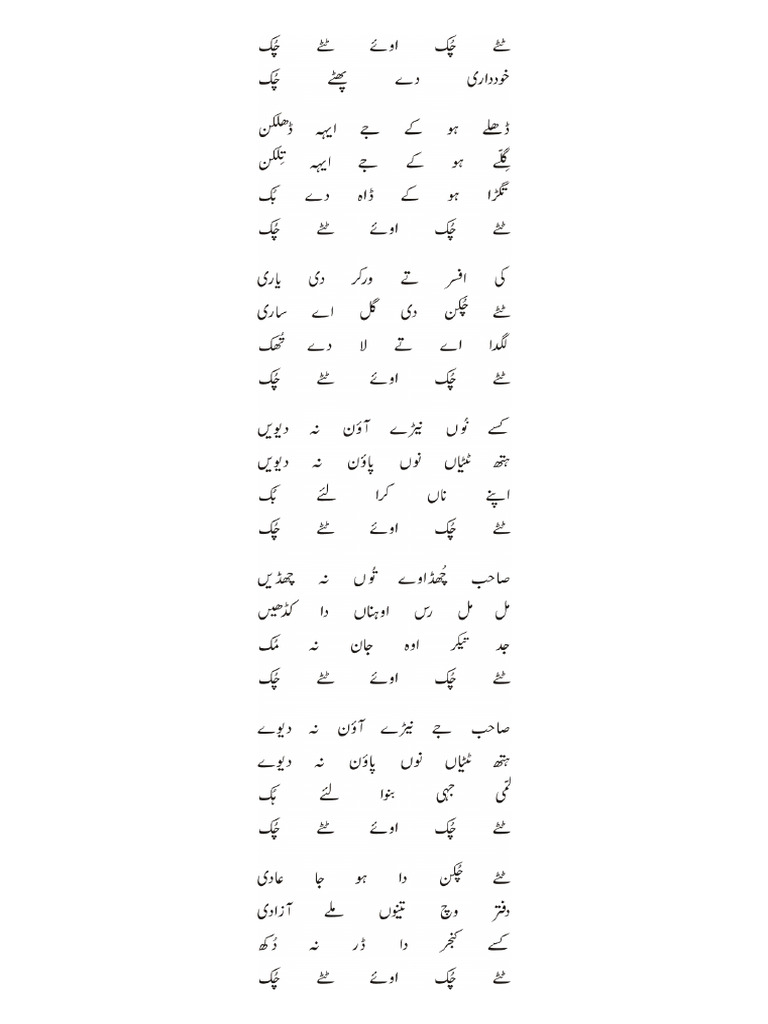 ٹٹے چُک اوئے ٹٹے چُک
خودداری دے پھٹے چُک
ڈھلے ہو کے جے ایہہ ڈھلکن
گِلّے ہو کے جے ایہہ تِلکن
تگڑا ہو کے ڈاہ دے بُک
ٹٹے چُک اوئے ٹٹے چُک
کی افسر تے ورکر دی یاری
ٹٹے چُکن دی گل اے ساری
لگدا اے تے لا دے تُھک
ٹٹے چُک اوئے ٹٹے چُک
کسے نُوں نیڑے آؤن نہ دیویں
ہتھ ٹٹیاں نوں پاؤن نہ دیویں
اپنے ناں کرا لئے بُک
ٹٹے چُک اوئے ٹٹے چُک
صاحب چُھڈاوے تُوں نہ چھڈیں
مل مل رس اوہناں دا کڈھیں
جد تیکر اوہ جان نہ مُک
ٹٹے چُک اوئے ٹٹے چُک
صاحب جے نیڑے آؤن نہ دیوے
ہتھ ٹٹیاں نوں پاؤن نہ دیوے
لمّی جہی بنوا لئے ہُک
ٹٹے چُک اوئے ٹٹے چُک
ٹٹے چُکن دا ہو جا عادی
دفتر وچ تینوں ملے آزادی
کسے کنجر دا ڈر نہ دُکھ
ٹٹے چُک اوئے ٹٹے چُک